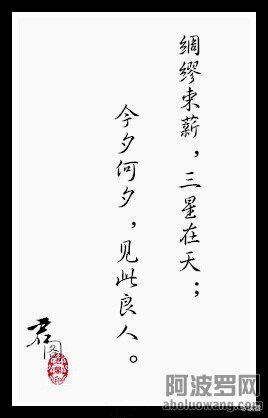 绸缪束薪，三星在天；
今夕何夕，见此良人。
君
阿波罗网
aboluowang.com